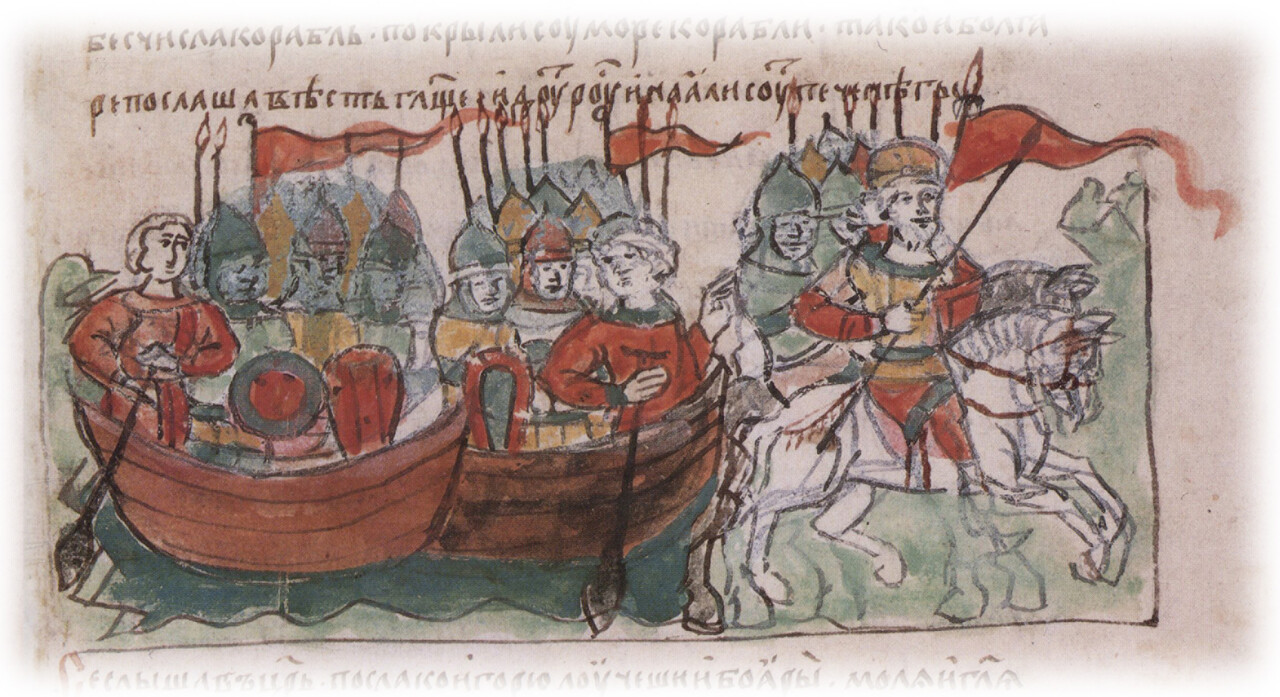 бесчисла корабль · покрыли соу море корабли · тако и болга
ре послаша вѣсть гл҃ще · идоуⷮ роуⷭ и наꙗли соуⷮ печенѣгы
се слышавъ цр҃ь · посла ко игорю лоучешии боꙗры · молѧ и гл҃ѧ